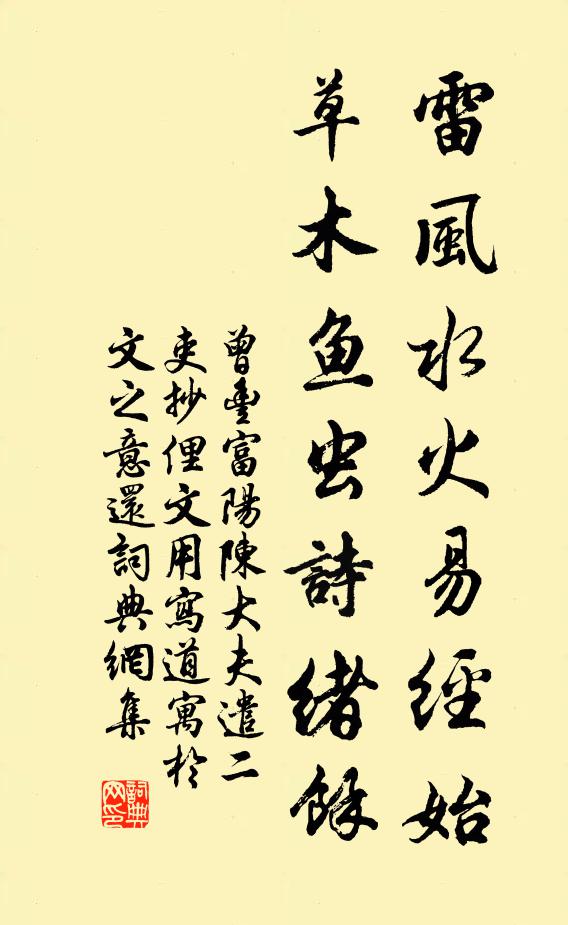 雷風水火易經始
草木魚虫詩緒餘
曾豐富陽陳大夫遣二
吏抄俚文用寫道寓於
文之意還詞典網集
詞典
网印